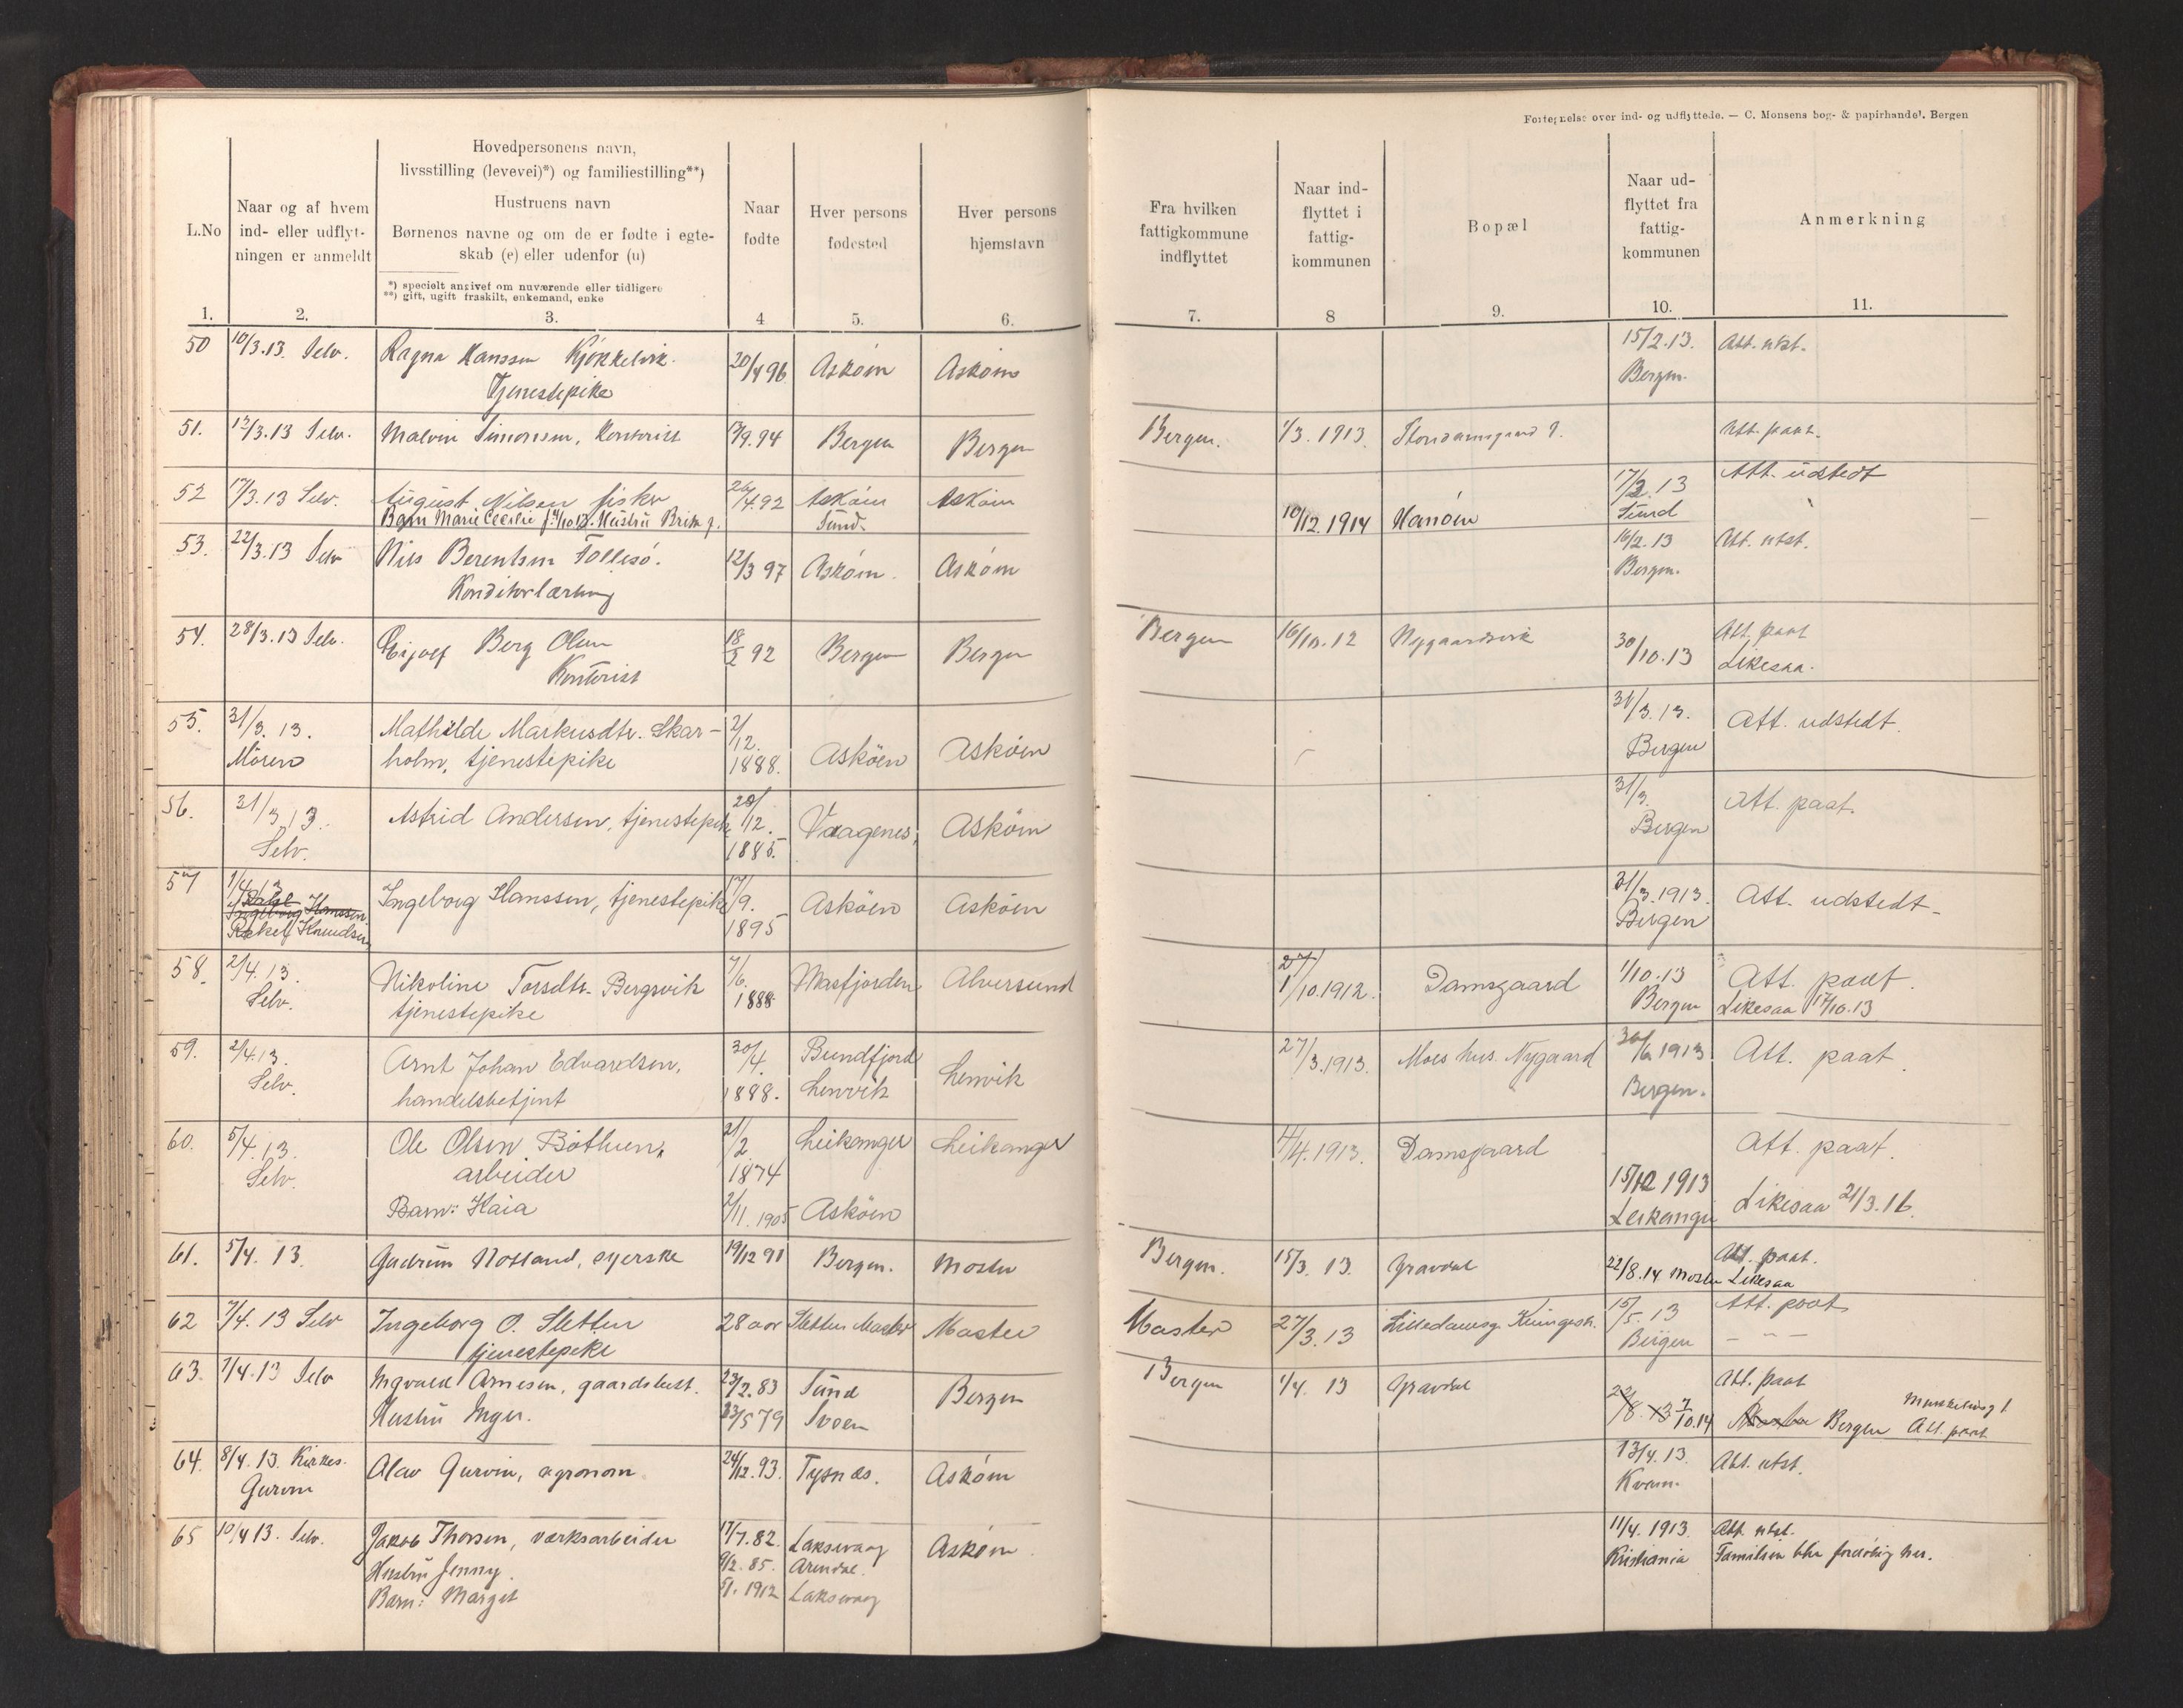 Fortegnelse over ind- og udflyttede. — C. Monsens bog- & papirhandel. Bergen
L.No
Naar og af hvem
ind- eller udflyt-
ningen er anmeldt
Hovedpersonens navn,
livsstilling (levevei)*) og familiestilling**)
Hustruens navn
Børnenes navne og om de er fødte i egte-
skab (e) eller udenfor (u)
*) specielt angivet om nuværende eller tidligere
**) gift, ugift fraskilt, enkemand, enke
Naar
fødte
Hver persons
fødested
Hver persons
hjemstavn
Fra hvilken
fattigkommune
indflyttet
Naar ind-
flyttet i
fattig-
kommunen
Bopæl
Naar ud-
flyttet fra
fattig-
kommunen
Anmerkning
1. 2. 3. 4 5. 6. 7. 8 9. 10. 11.
50 10/3.13. Selv. Ragna Hanssen Kjøkkelvik. 20/4 96 Askøin Askøin 15/2.13. Att. utst.
Tjenestepike Bergen.
51. 12/3.13 Selv. Malvin Simonsen, Kontorist 13/9.94 Bergen Bergen Bergen. 1/3.1913. Att. paat.
52 17/3.13 Selv. August Nilsen fisker 26/4.92 Askøin Askøin 17/3.13 Att. udstedt
Barn Marie Cecilie f. 4/10 13. Hustru Sund. 10/12.1914 Hanöen Sund
53. 22/3.13 Selv Nils Berentsen Follesø. 12/3 97 Askøin. Askøin 16/2.13 Att. utst.
Konditorlærling Bergen.
54. 28/3.13 Selv. Eijolf Berg Olsen 18/2 92 Bergen Bergen Bergen 16/10.12 Nygaardsvik 30/10.13 Att. paat
Kontorist Likesaa.
55. 31/3.13. Mathilde Markusdtr. Skar- 2/12. 31/3.13. Att. udstedt.
Moren holm, tjenestepike 1888. Askøen Askøen Bergen
56. 31/3 13. Astrid Andersen, tjenestepike 20/12. Vaagenes, Askøin 31/3. Att. paat.
Selv. 1885. Bergen
57 1/4 13 Ingeborg Hanssen, tjenestepike 17/9. Askøen Askøen 31/3.1913. Att. udstedt
Ingeborg Hanssen
Rakel Knudsen 1895 Bergen
58. 2/4.13. Nikoline Torsdtr. Bergsvik 7/6. Masfjorden Alversund 1/10.1912. Damsgaard 1/10.13 Att. paat.
Selv. tjenestepike 1888 Bergen Likesaa 17/10.13
59. 2/4.13. Arnt Johan Edvardsen, 30/4. Bundfjord Lenvik 27/3.1913. Moes hus. Nygaard 30/6 1913 Att. paat.
Selv. handelsbetjent 1888. Lenvik Bergen.
60. 5/4.13. Ole Olsen Bøthun, 21/2 Leikanger Leikanger 4/4.1913. Damsgaard Att. paat.
Selv. arbeider 1874 15/12 1913
Barn: Kaia 2/11.1905 Askøen Leikanger Likesaa 21/3.16.
61. 5/4.13. Gudrun Notland, syerske 19/12 91 Bergen. Moster Bergen. 15/3.13. Gravdal 22/8.14 Moster Att. paat.
Likesaa
62 7/4.13 Selv Ingeborg O. Sletten 28 aar Sletten Moster Moster Moster 27/3.13 15/5.13 Att. paat
tjenestepike Bergen — " —
63. 7/4.13 Selv Ingvald Arnesen, gaardsbest. 23/2.83 Sund Bergen Bergen 1/4.13 Gravdal Att. paat
Hustru Inger. 23/5 79 Sveen 7/10.14 Moster Bergen Att. paat
64. 8/4.13. Kirkes. Olav Gurvin, agronom 24/12.93. Tysnes. Askøin 13/4.13. Att. utst.
Gurvin Kvam.
65 10/4 13. Selv. Jakob Thorsen, værksarbeider 17/7.82. Laksevaag Askøin. 11/4.1913. Att. utst.
Hustru Jenny. 9/2.85. Arendal. Kristiania Familien blir foreløbig her.
Barn: Margit 5/1.1912 Laksevaag